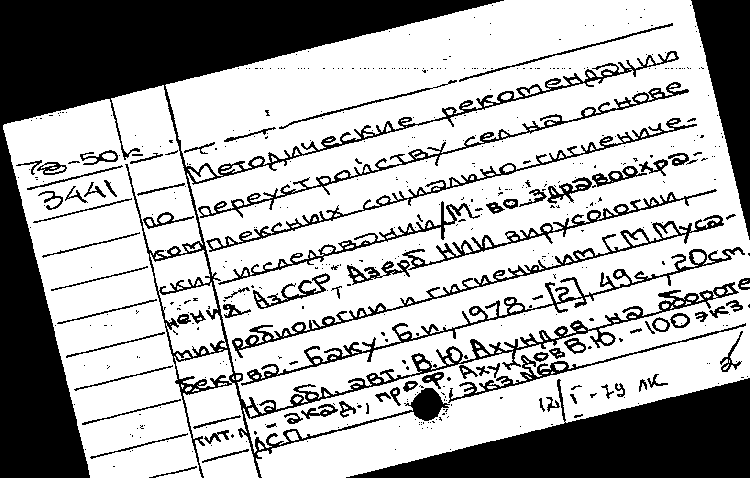 78-50к
3441
Методические рекомендации
по переустройству сел на основе
комплексных социально-гигиениче-
ских исследований/М-во здравоохра-
нения АзССР, Азерб НИИ вирусологии,
микробиологии и гигиены им. Г.М.Муса-
бекова.- Баку: Б.и., 1978.-[2], 49с.; 20см.
На обл. авт.: В.Ю.Ахундов. на обороте
тит.л. - акад., проф. Ахундов В.Ю. -100 экз.
ДСП. , экз.№60.
12/I-79 лк 2